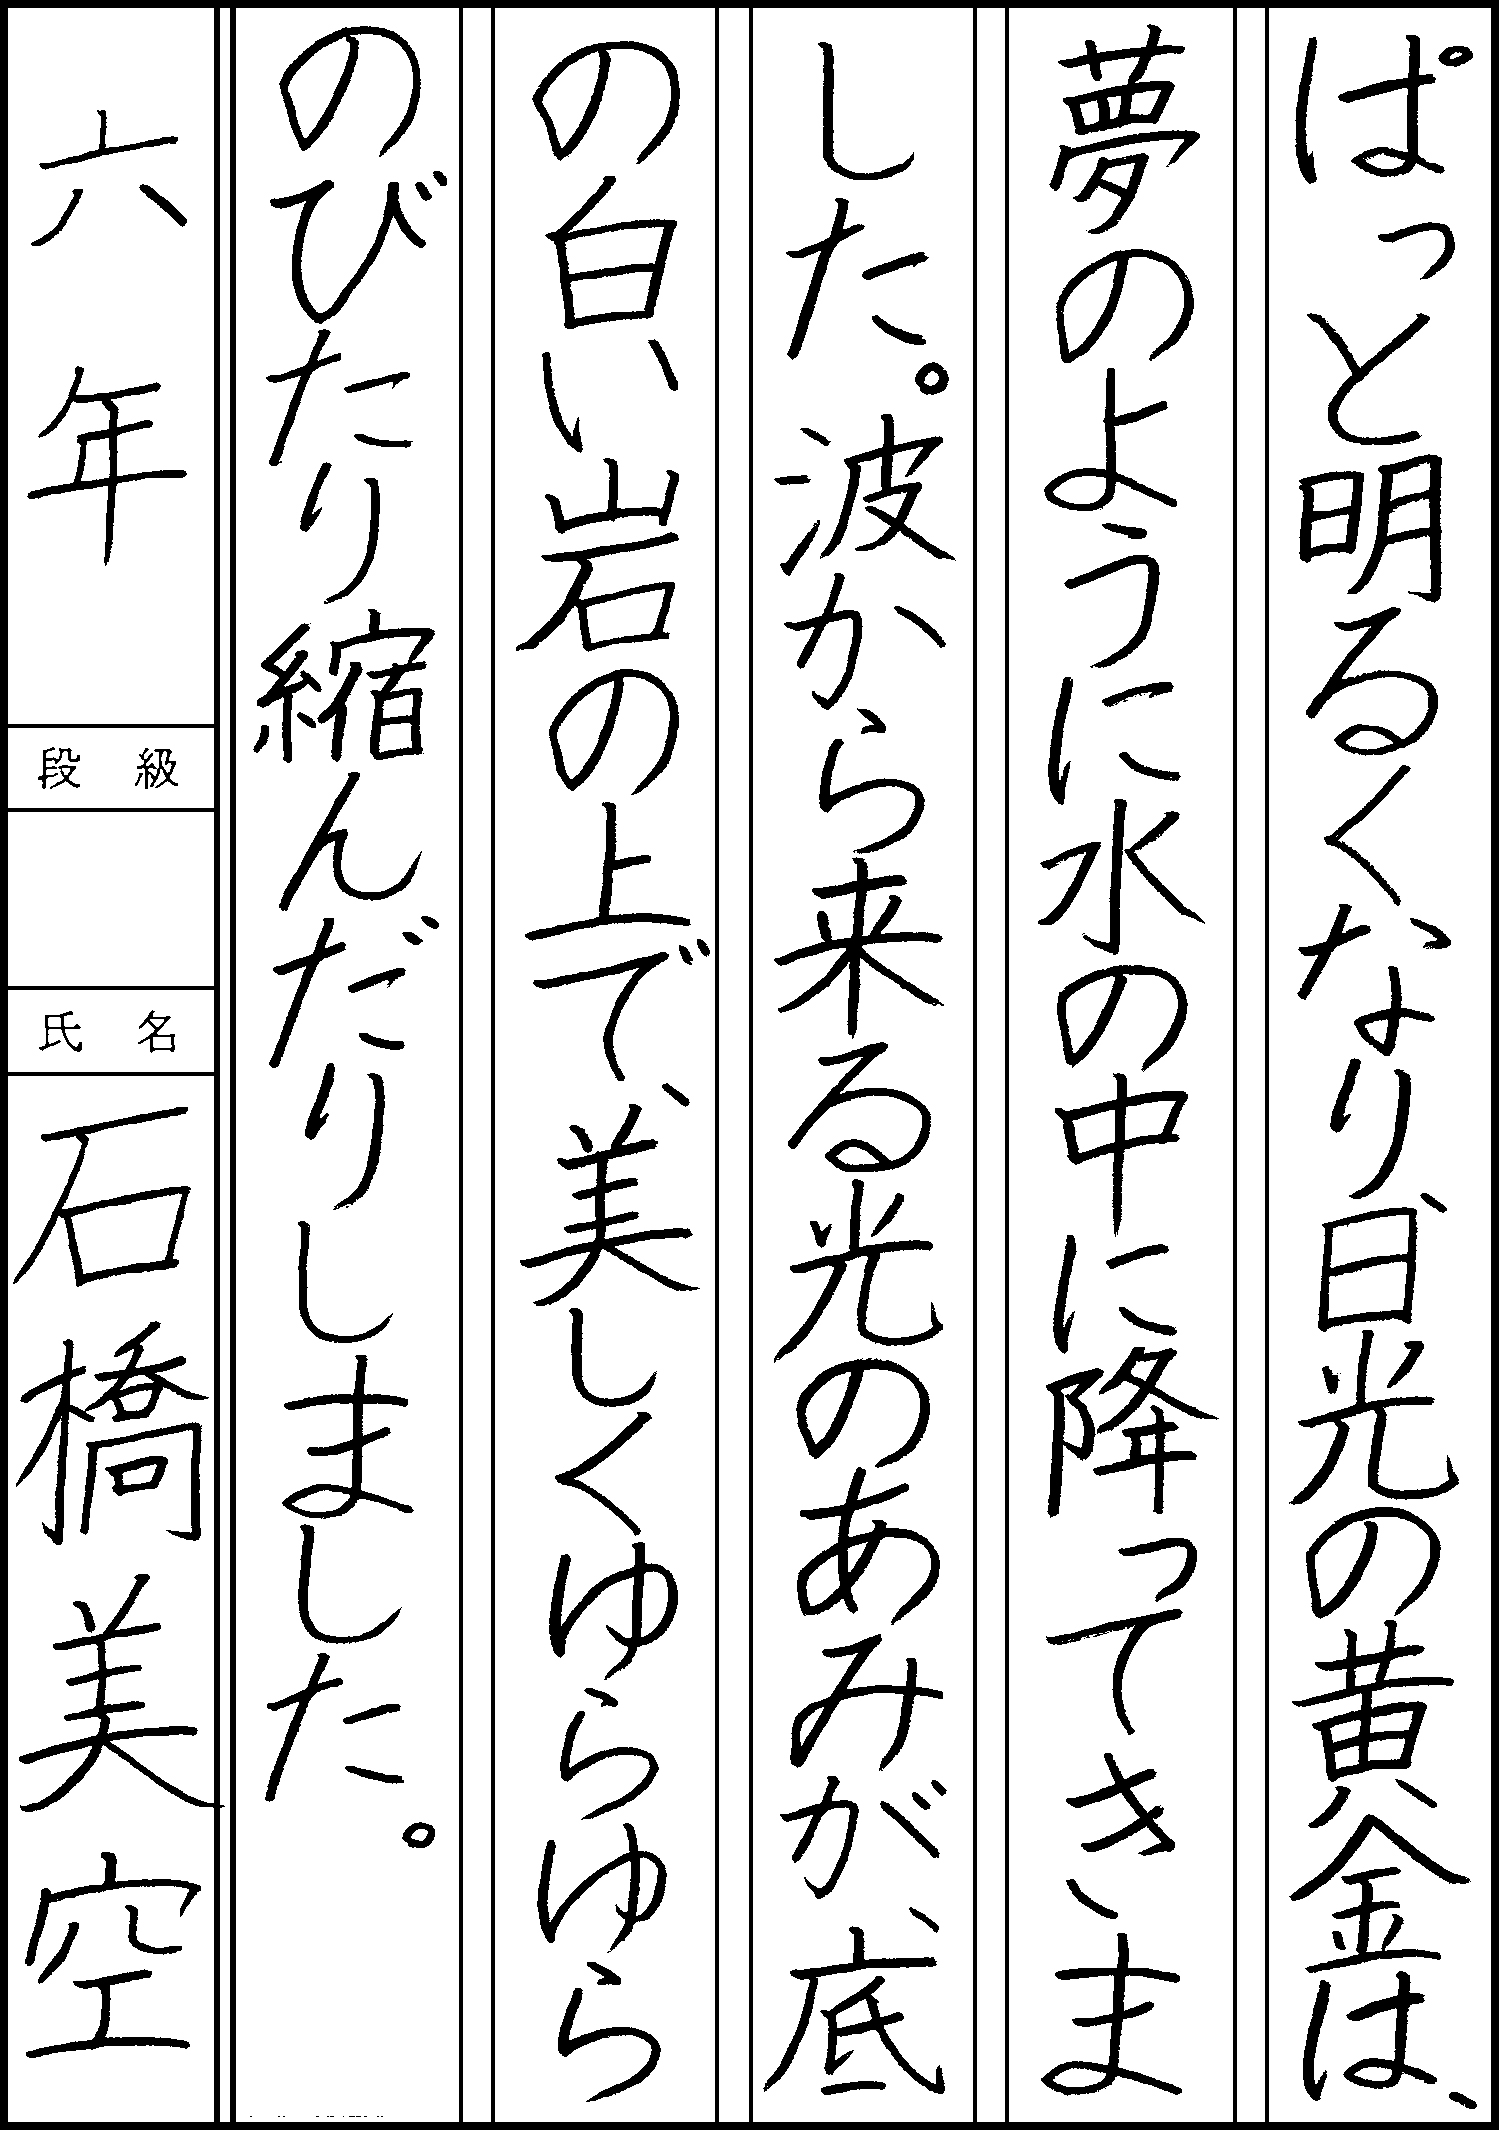 ぱっと明るくなり、日光の黄金は、
夢のように水の中に降ってきま
した。波から来る光のあみが、底
の白い岩の上で、美しくゆらゆら
のびたり縮んだりしました。
六年
段級
氏名
石橋美空